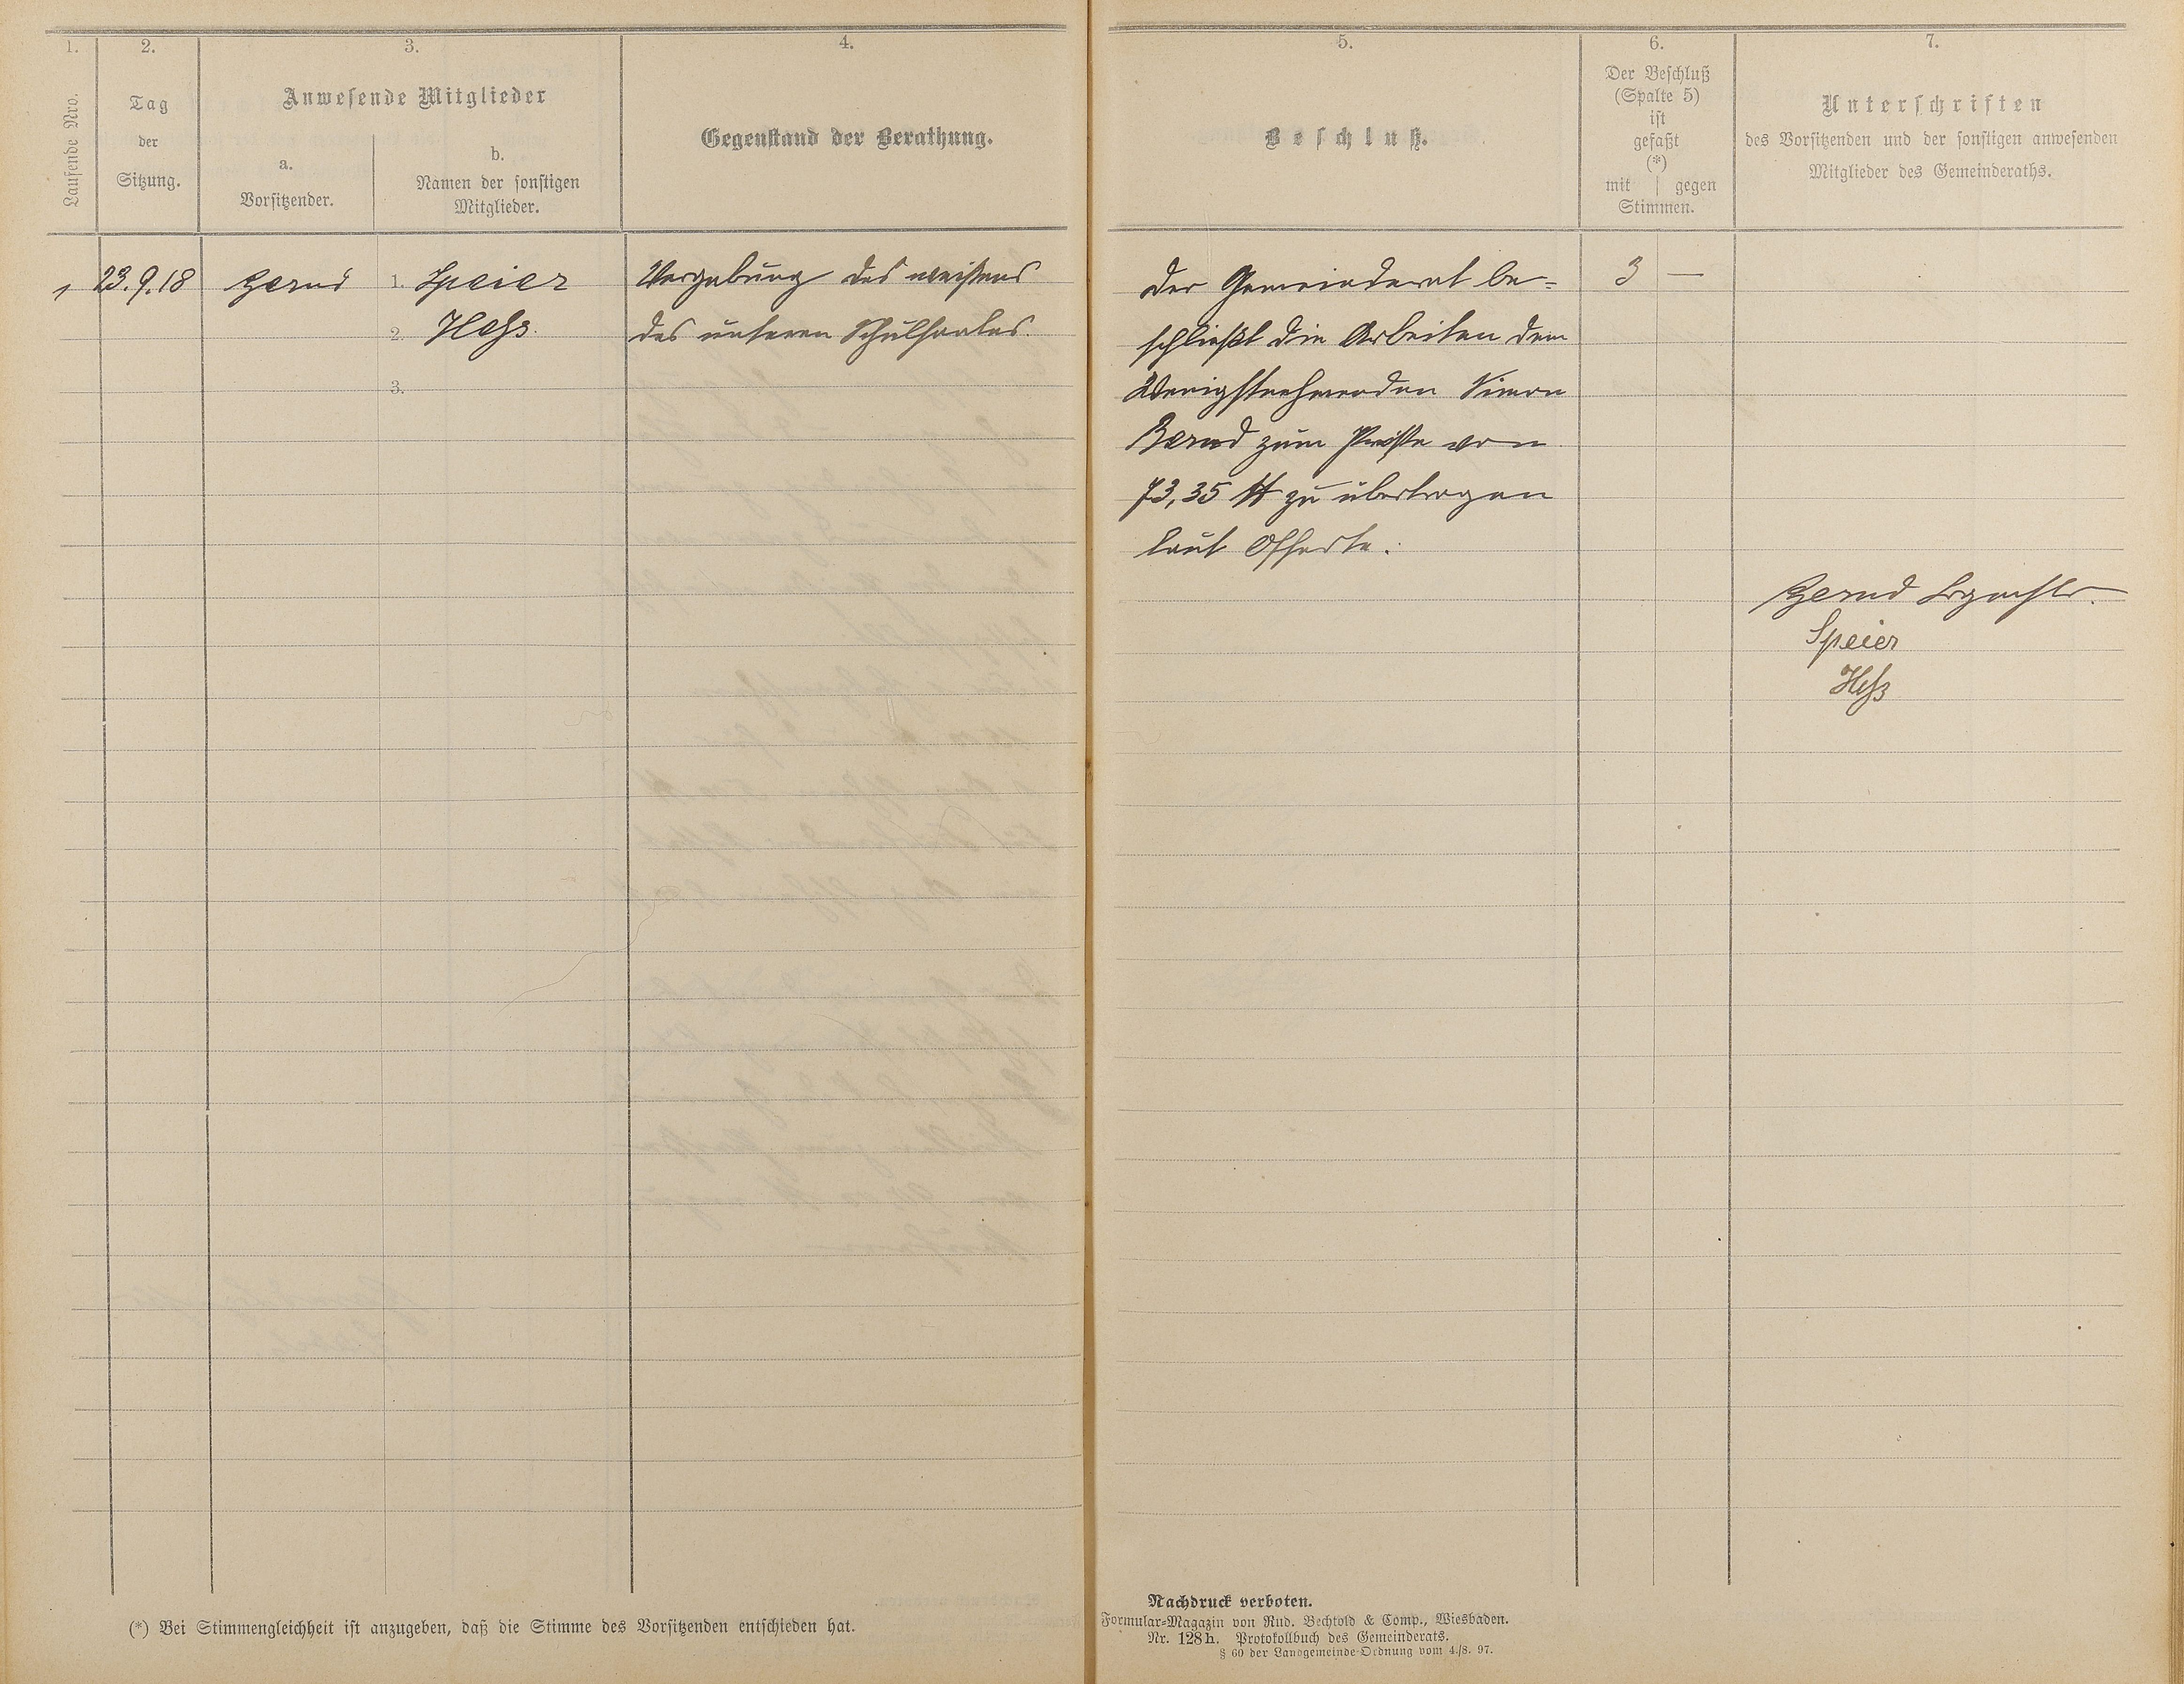 1.
2.
3.
4.
Laufende Nro.
Tag
der
Sitzung.
Anwesende Mitglieder
a.
Vorsitzender.
b.
Namen der sonstigen
Mitglieder.
Gegenstand der Berathung.
1 23.9.18 Bernd 1. Speier Vergebung des weißens
2. Heß. des unteren Schulsaales.
3.
(*) Bei Stimmengleichheit ist anzugeben, daß die Stimme des Vorsitzenden entschieden hat.
5.
6.
7.
Beschluß.
Der Beschluß
(Spalte 5)
ist
gefaßt
(*)
mit | gegen
Stimmen.
Unterschriften
des Vorsitzenden und der sonstigen anwesenden
Mitglieder des Gemeinderaths.
Der Gemeinderat be- 3 —
schließt die Arbeiten dem
Wenigstnehmenden Simon
Bernd zum Preiße von
73,35 M zu übertragen
laut Offerte.
Bernd Brgmstr.
Speier
Heß
Nachdruck verboten.
Formular-Magazin von Rud. Bechtold & Comp., Wiesbaden.
Nr. 128h. Protokollbuch des Gemeinderats.
§ 60 der Landgemeinde-Ordnung vom 4./8. 97.